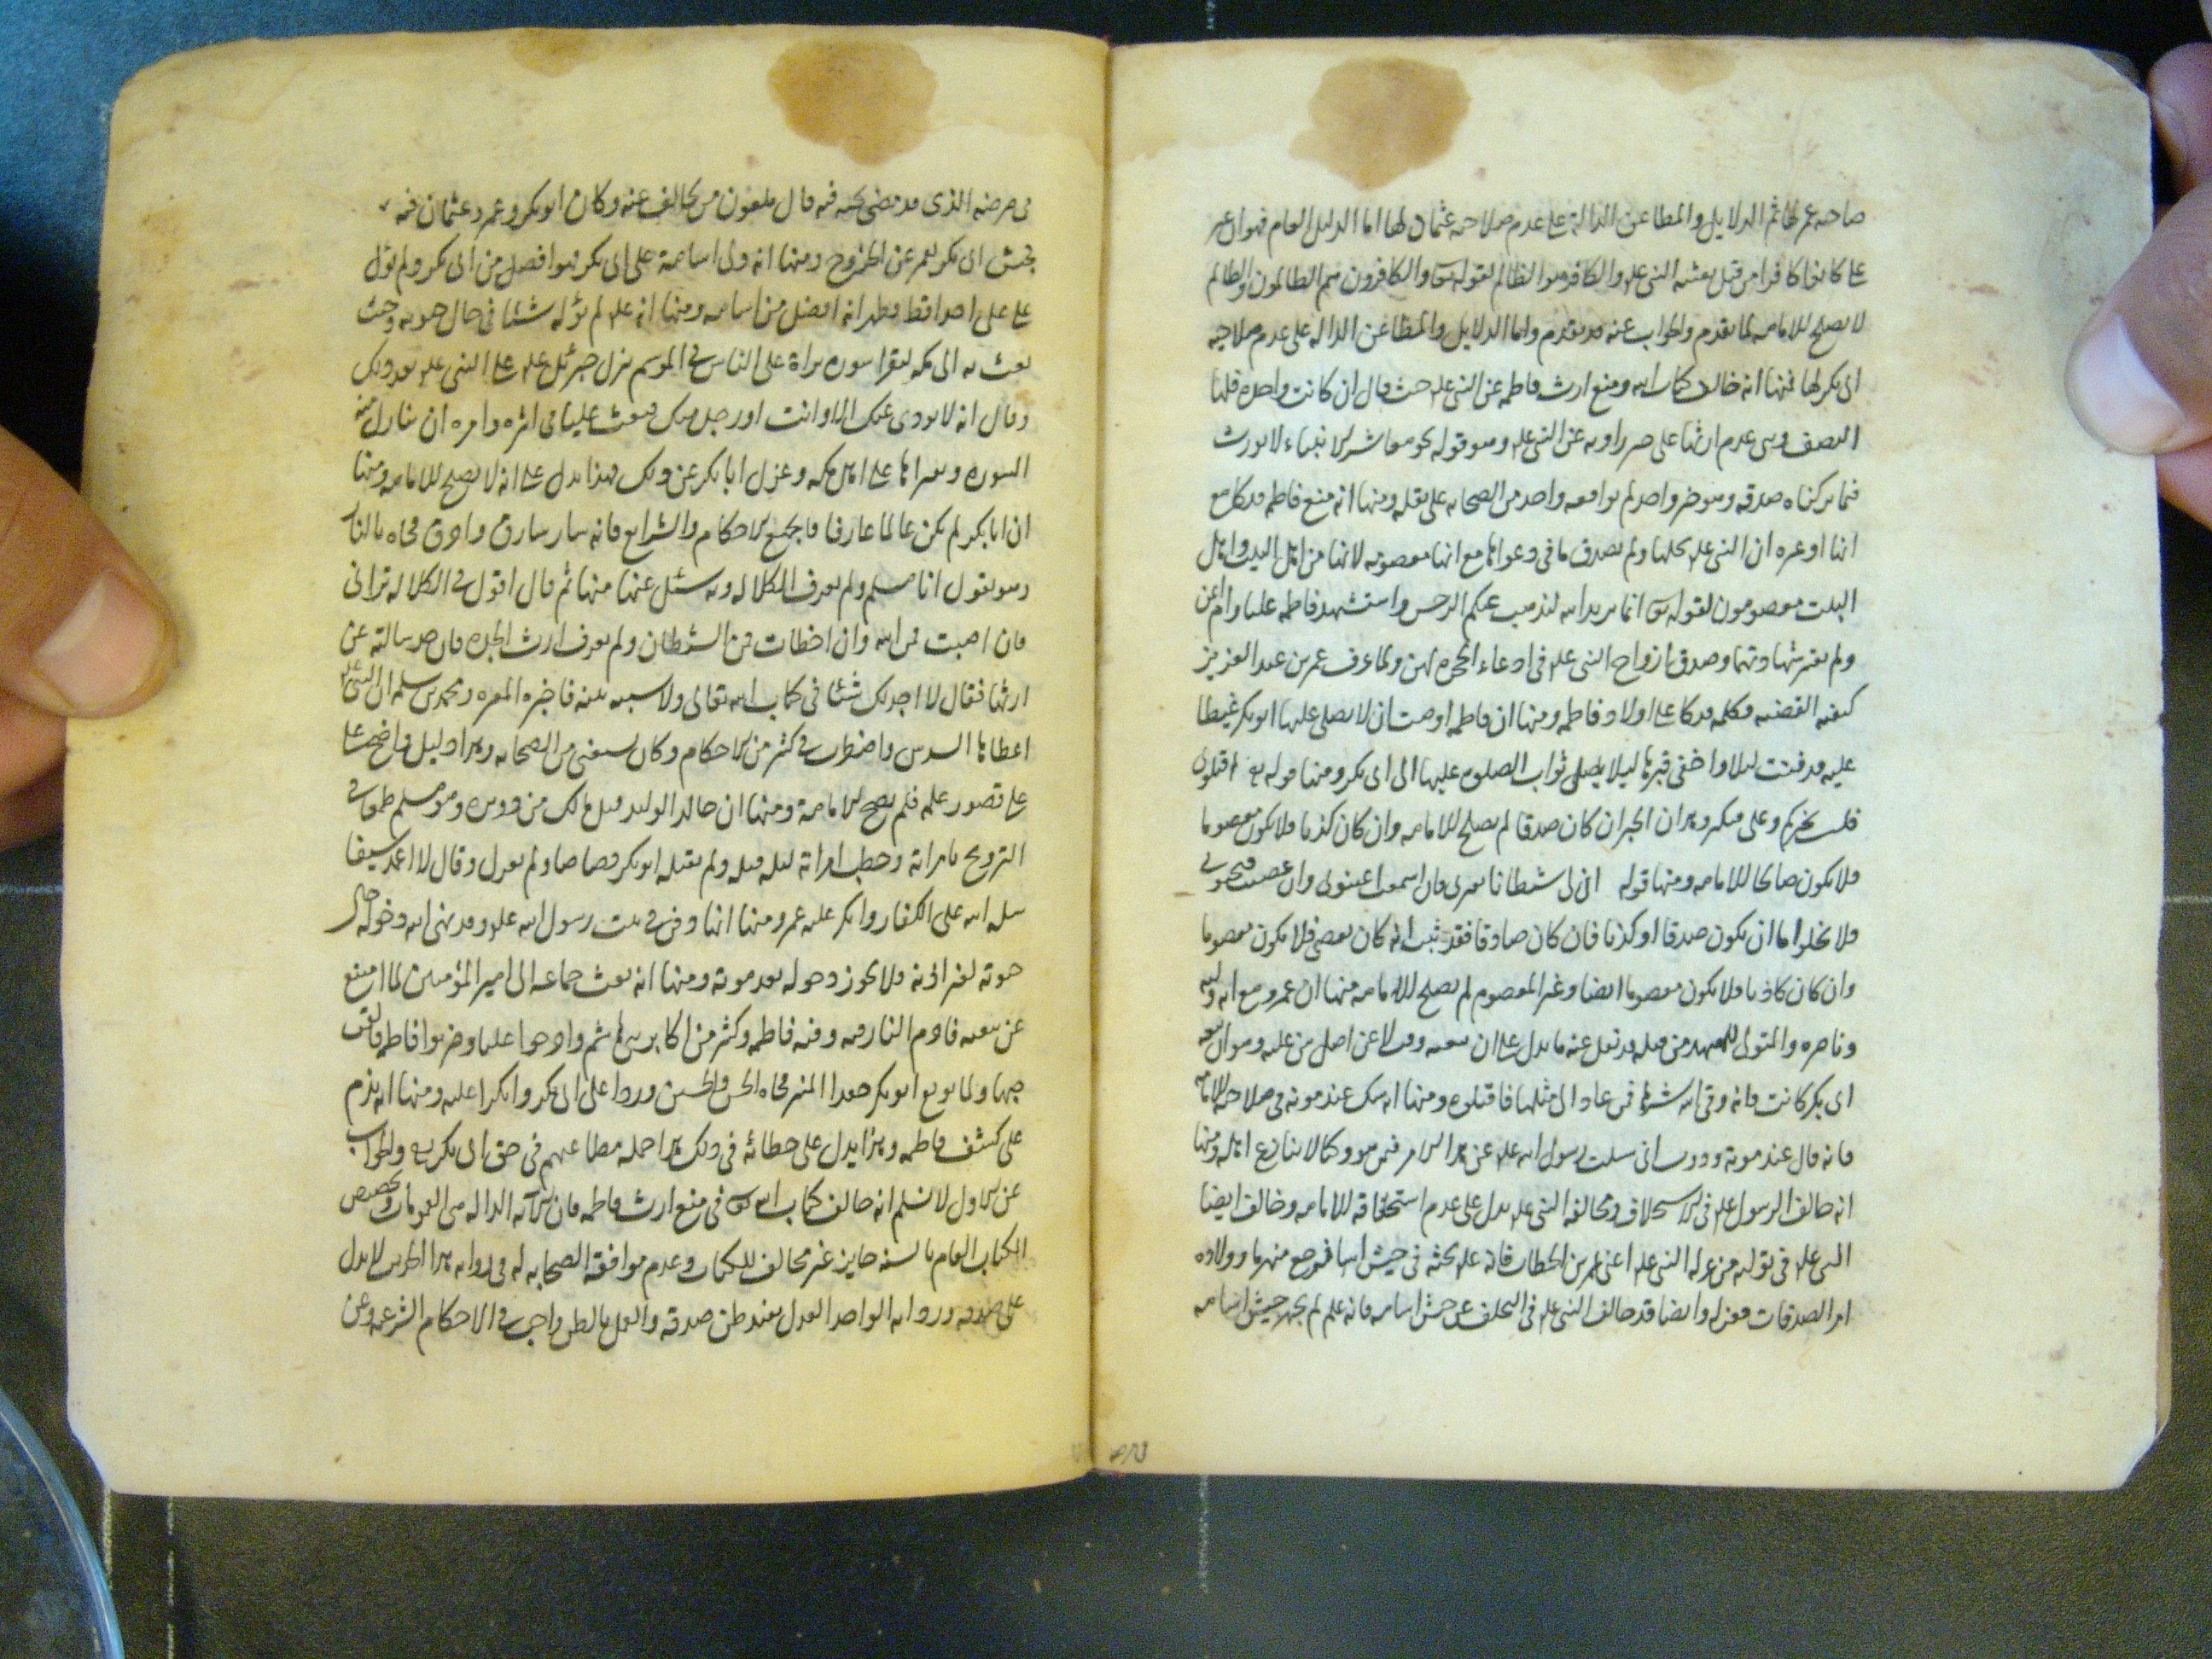 صاحبه عمر لها ثم الدلايل والمطاعن الدالة على عدم صلاحية عثمان لها اما الدليل العام فهو ان غير
على كانوا كافرا من قبل بعثه النبى علم والكافر هو الظالم لقوله تعا والكافرون هم الظالمون والظالم
لا يصلح للامامه لما تقدم والجواب عنه قد تقدم واما الدلايل والمطاعن الداله على عدم صلاحيه
ابى بكر لها فمنها انه خالف كتاب الله ومنع ارث فاطمه عن النبى علم حيث قال ان كانت واحدة فلها
النصف وهى عدم ارثها على خبر راويه عن النبى علم وهو قوله نحن معاشر الانبياء لا نورث
فما تركناه صدقه وهو خبر واحد لم يوافقه واحد من الصحابه على نقله ومنها انه منع فاطمه فدكا مع
انها ادعت ان النبى علم نحلها ولم يصدقها فى دعواها مع انها معصومه لانها من اهل البيت واهل
البيت معصومون لقوله تعا انما يريد الله ليذهب عنكم الرجس واستشهد فاطمه عليا وام ايمن
ولم يعتبر شهادتهما وصدق ازواج النبى علم فى ادعاء الحجرة لهن ولما عرف عمر بن عبد العزيز
كيفيه القضيه وكله فدكا على اولاد فاطمه ومنها ان فاطمه اوصت ان لا يصلى عليها ابو بكر غيظا
عليه ودفنت ليلا واخفى قبرها ليلا يصل ثواب الصلوه عليها الى ابى بكر ومنها قوله اقيلونى
فلست بخيركم وعلى فيكم وهذا ان الخبر ان كان صدقا لم يصلح للامامه وان كان كذبا فلا يكون معصوما
فلا يكون صالحا للامامه ومنها قوله ان لى شيطانا يعترينى فان استقمت اعينونى وان عصيت
فلا يخلوا اما ان يكون صدقا او كذبا فان كان صادقا فقد ثبت انه كان يعصى فلا يكون معصوما
وان كان كاذبا فلا يكون معصوما ايضا وغير المعصوم لم يصلح للامامه منها ان عمر مع انه وليه
وناصره والمتولى للعهد من قبله قد نقل عنه ما يدل على ان بيعته
ابى بكر كانت فلته وقى الله شرها فمن عاد الى مثلها فاقتلوه ومنها انه شك عند موته فى صلاحه للامامه
فانه قال عند موته وددت انى سالت رسول الله علم عن هذا الامر فيمن هو وكنا لا ننازع اهله ومنها
انه خالف الرسول علم فى الاستخلاف ومخالفه النبى علم يدل على عدم استحقاقه للامامه وخالف ايضا
النبى علم فى توليه من عزله النبى علم اعنى عمر بن الخطاب فانه علم بعثه فى جيش ايضا فرجع منهزما وولاه
امر الصدقات فعزله وايضا قد خالف النبى علم فى التخلف عن جيش اسامه فانه علم لم يجهز جيش اسامه
فى مرضه الذى قد قضى نحبه فيه قال ملعون من تخالف عنه وكان ابو بكر وعمر وعثمان فيه
جيش ابى بكر لعمر عن الخروج ومنها انه ولى اسامة على ابى بكر فهو افضل من ابى بكر ولم يول
على على احدا قط فظهر انه افضل من اسامه ومنها انه علم لم يوله شيئا فى حال حيوته وحيث
بعث به الى مكه ليقرا سوره براة على الناس فى الموسم نزل جبرئيل علم على النبى علم بعد ذلك
وقال انه لا يودى عنك الا انت او رجل منك فبعث عليا فى اثره وامره ان يتناول منه
السوره ويقراها على اهل مكه وعزل ابا بكر عن ذلك فهذا يدل على انه لا يصلح للامامه ومنها
ان ابا بكر لم يكن عالما عارفا بجميع الاحكام والشرايع فانه يسار سارق واحرق فجاه بالنار
وهو يقول انا مسلم ولم يعرف الكلاله وسئل عنها ثم قال اقول فى الكلاله برائى
فان اصبت فمن الله وان اخطات فمن الشيطان ولم يعرف ارث الجده فان جده سالته عن
ارثها فقال لا اجد لك شيئا فى كتاب الله تعالى ولا سنه نبيه فاخبره المغيره ومحمد بن سلمه ان النبى علم
اعطاها السدس واضطرب فى كثير من الاحكام وكان يستفتى من الصحابه وهذا دليل واضح على
على قصور علمه فلم يصح للامامة ومنها ان خالد الوليد قتل مالك بن نويره وهو مسلم طمعا فى
التزويج بامراته وخطب امراته ليله قتله ولم يقتله ابو بكر قصاصا ولم يعزل وقال لا اغمد سيفا
سله الله على الكفار وانكر عليه عمر ومنها انها دفن فى بيت رسول الله علم وقد نهى الله دخوله حال
حيوته لغير اذنه فلا يجوز دخوله بعد موته ومنها انه بعث جماعه الى امير المؤمنين لما امتنع
عن بيعته فاضرم النار فيه وفيه فاطمه وكثير من اكابر بنى هاشم واخرجوا عليا وضربوا فاطمه فالقت
جنينها ولما بويع ابو بكر صعد المنبر فجاه الحسن والحسين وردا على ابى بكر وانكرا عليه ومنها انه ندم
على كشف فاطمه وهذا يدل على خطائه فى ذلك هذا جمله مطاعنهم فى حق ابى بكر والجواب
عن الاول لا نسلم انه خالف كتاب الله تعا فى منع ارث فاطمه فان الايه الداله من العمومات وتخصيص
الكتاب العام بالسنه جايز غير مخالف للكتاب وعدم موافقة الصحابه له فى روايه هذا الخبر لا يدل
على ضعفه وروايه الواحد العدل يفيد ظن صدقه والعمل بالظن واجب فى الاحكام الشرعيه وعن